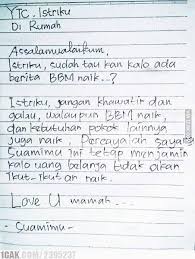 YTC. Istriku
Di Rumah
Assalamualaikum,
Istriku, sudah tau kan kalo ada
berita BBM naik..?
Istriku, jangan khawatir dan
galau, walaupun BBM naik,
dan kebutuhan pokok lainnya
juga naik, Percayalah sayang
Suamimu ini tetap menjamin
kalo uang belanja tidak akan
Ikut-Ikutan naik.
Love U mamah...
- Suamimu -
1CAK.COM/2395237